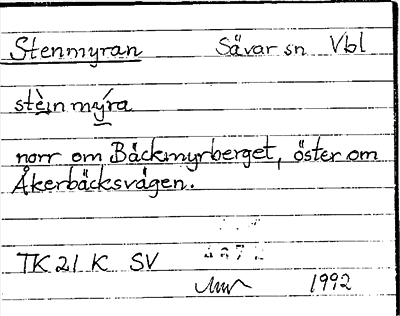 Stenmyran Sävar sn Vbl
stèi̯n mý̱ra
norr om Bäckmyrberget, öster om
Åkerbäcksvägen.
TK 21 K SV
1992